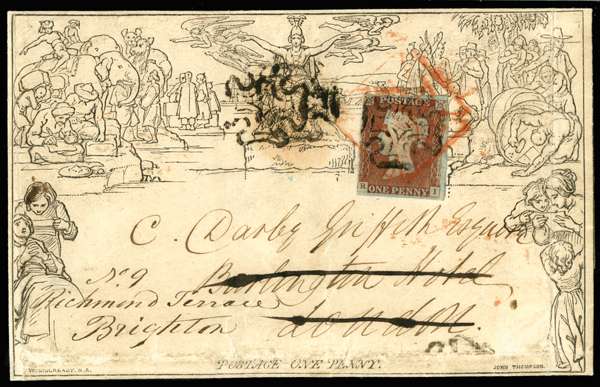 POSTAGE
ONE PENNY
C. Darby Griffith Esquire
No. 9 Burlington Hotel
Richmond Terrace
Brighton London.
POSTAGE ONE PENNY.
W. MULREADY. R.A.
JOHN THOMPSON.